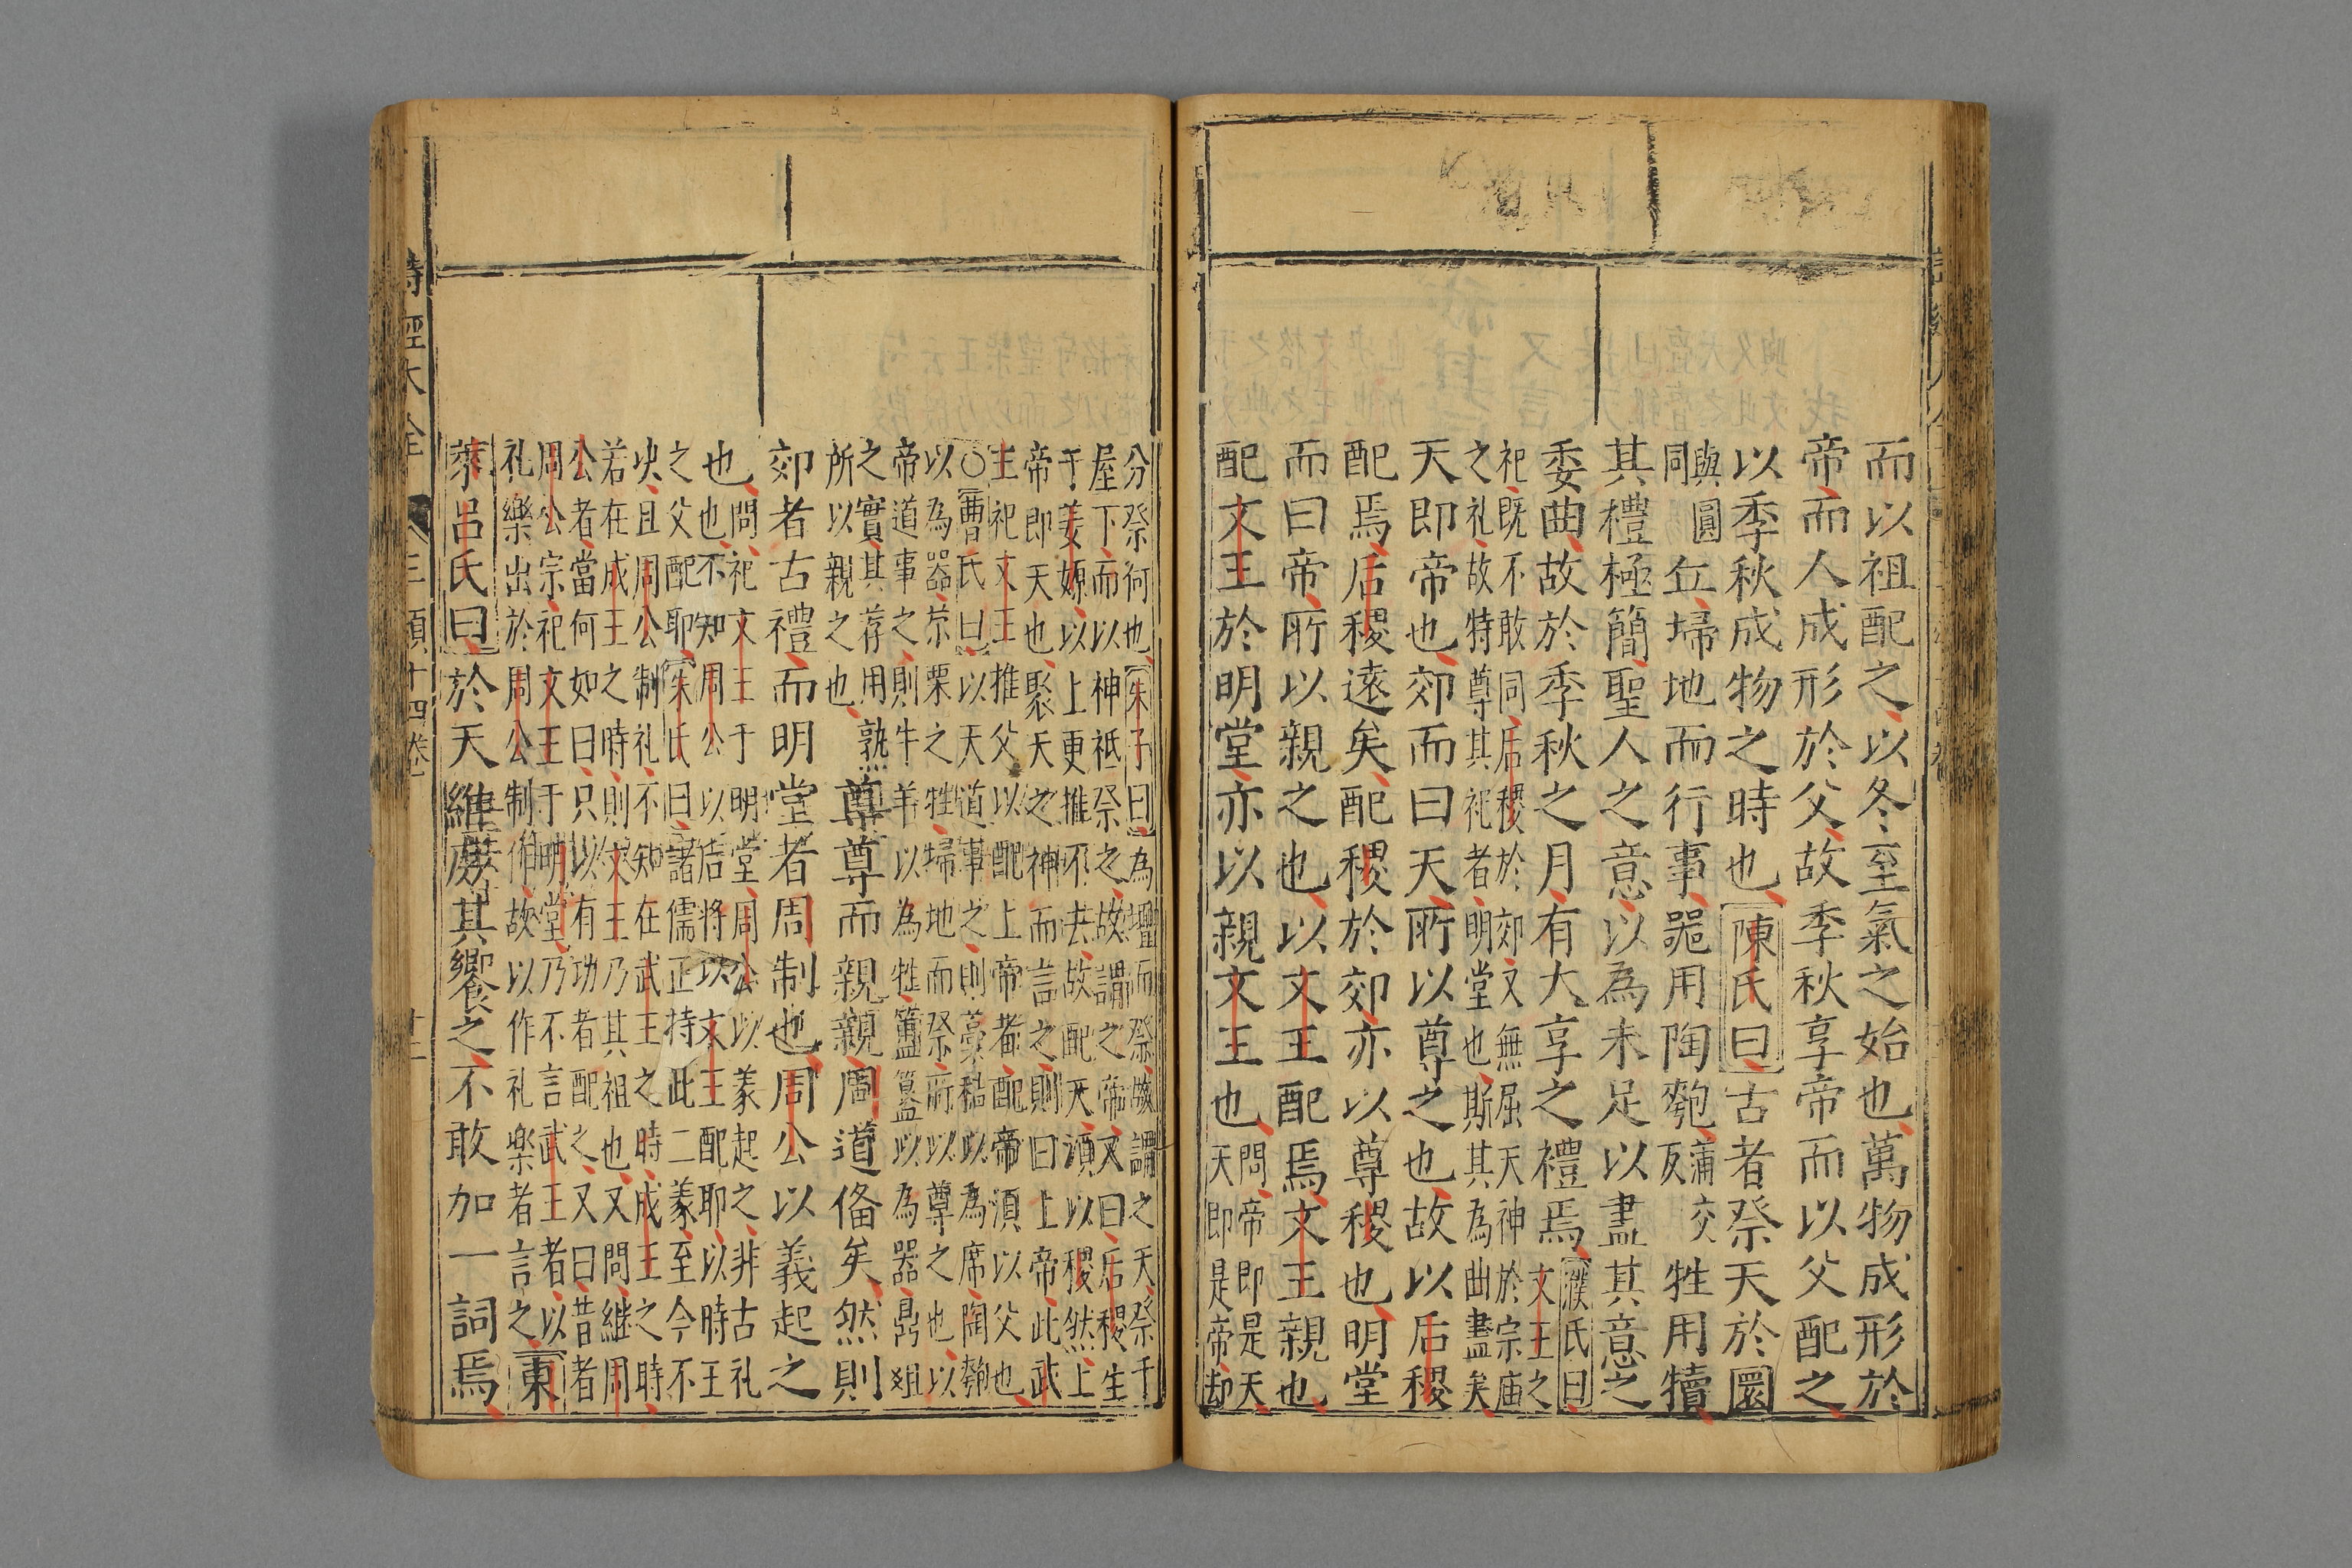 而以祖配之以冬至氣之始也萬物成形於
帝而人成形於父故季秋享帝而以父配之
以季秋成物之時也陳氏曰古者祭天於圜
與圓
同
丘埽地而行事噐用陶匏
蒲交
反
牲用犢
其禮極簡聖人之意以為未足以盡其意之
委曲故於季秋之月有大享之禮焉
濮氏曰文王之
祀既不敢同后稷於郊又無屈天神於宗庙
之礼故特尊其祀者明堂也斯其為曲盡矣
天即帝也郊而曰天所以尊之也故以后稷
配焉后稷遠矣配稷於郊亦以尊稷也明堂
而曰帝所以親之也以文王配焉文王親也
配文王於明堂亦以親文王也
問帝即是天
天即是帝却
分祭何也朱子曰為壇而祭故謂之天祭于
屋下而以神祇祭之故謂之帝又曰后稷生
于姜嫄以上更推不去故配天須以稷然上
帝即天也聚天之神而言之則曰上帝此武
王祀文王推父以配上帝者配帝須以父也
○曹氏曰以天道事之則藁秸以為席陶匏
以為器栗之牲埽地而祭所以尊之也以
帝道事之則牛羊以為牲簠簋以為器鼎俎
之實其荐用熟
所以親之也
尊尊而親親周道俻矣然則
郊者古禮而明堂者周制也周公以義起之
也
問祀文王于明堂周公以义起之非古礼
也不知周公以后將以文王配耶以時王
之父配耶朱氏曰諸儒正持此二义至今不
决且周公制礼不知在武王之時成王之時
若在成王之時則文王乃其祖也又問継周
公者當何如曰只以有功者配之又曰昔者
周公宗祀文王于明堂乃不言武王者以
礼樂出於周公制作故以作礼楽者言之
東
萊呂氏曰於天維庶其饗之不敢加一詞焉
詩經大全
三頌十四卷